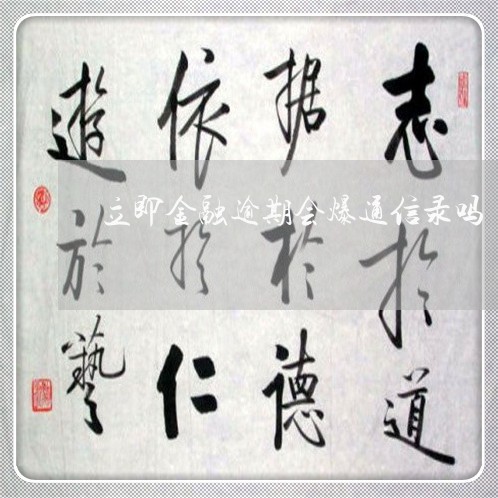 志於道
据於德
依於仁
遊於藝
立即金融逾期会爆通信录吗